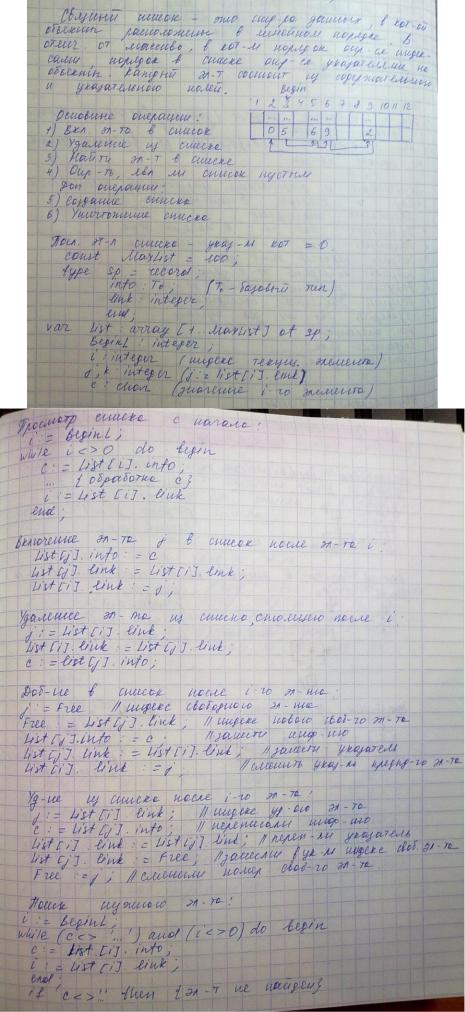 Связный список - это стр-ра данных, в кот-ой
объекты расположены в линейном порядке. В
отлич. от массива, в кот-м порядок опр-ся индек-
сами порядок в списке опр-ся указателями на
объекты. Каждый эл-т состоит из содержательного
и указательного полей.
Begin
1 2 3 4 5 6 7 8 9 10 11 12
Основные операции:
0 5 6 9 2
1) Вкл эл-та в список
2) Удаление из списка
3) Найти эл-т в списке
4) Опр-ть, явл ли список пустым
Доп операции:
5) Создание списка
6) Уничтожение списка
Посл. эл-т списка - указ-ль кот = 0.
const MaxList = 100;
type Sp = record;
info: T0; (T0 - базовый тип)
link: integer;
end;
var List: array [1..MaxList] of Sp;
Begin1: integer;
i: integer (индекс текущ. элемента)
j, k: integer (j:= list[i].link)
c: char (значение i-го элемента)
Просмотр списка с начала:
i:= Begin1;
while i<>0 do begin
c:= List[i].info;
... {обработка c}
i:= List[i].link
end;
Включение эл-та j в список после эл-та i:
List[j].info:= c
List[j].link:= List[i].link;
List[i].link:= j;
Удаление эл-та из списка, стоящего после i:
j:= List[i].link;
List[i].link:= List[j].link;
c:= list[j].info;
Доб-ие в список после i-го эл-та:
j:= Free //индекс свободного эл-та
Free:= List[j].link; //индекс нового своб-го эл-та
List[j].info:= c; //занести инф-ию
List[j].link:= List[i].link; //занести указатель
List[i].link:= j; //сменить указ-ль предыд-го эл-та
Уд-ие из списка после i-го эл-та:
j:= List[i].link; //индекс уд-ого эл-та
c:= List[j].info; //переписали инф-ию
List[i].link:= List[j].link; //переп-ли указатель
List[j].link:= Free; //занесли в ук-ль индекс своб эл-та
Free:= j; //сменили номер своб-го эл-та
Поиск нужного эл-та:
i:= Begin1;
while (c<>'...') and (i<>0) do begin
c:= List[i].info;
i:= List[i].link;
end;
if c<>'...' then {эл-т не найден}